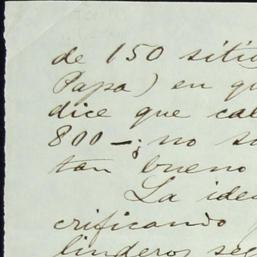 de 150 siti
Papa) en q
dice que cal
800-; no s
tan bueno
La ide
crificando
linderos se